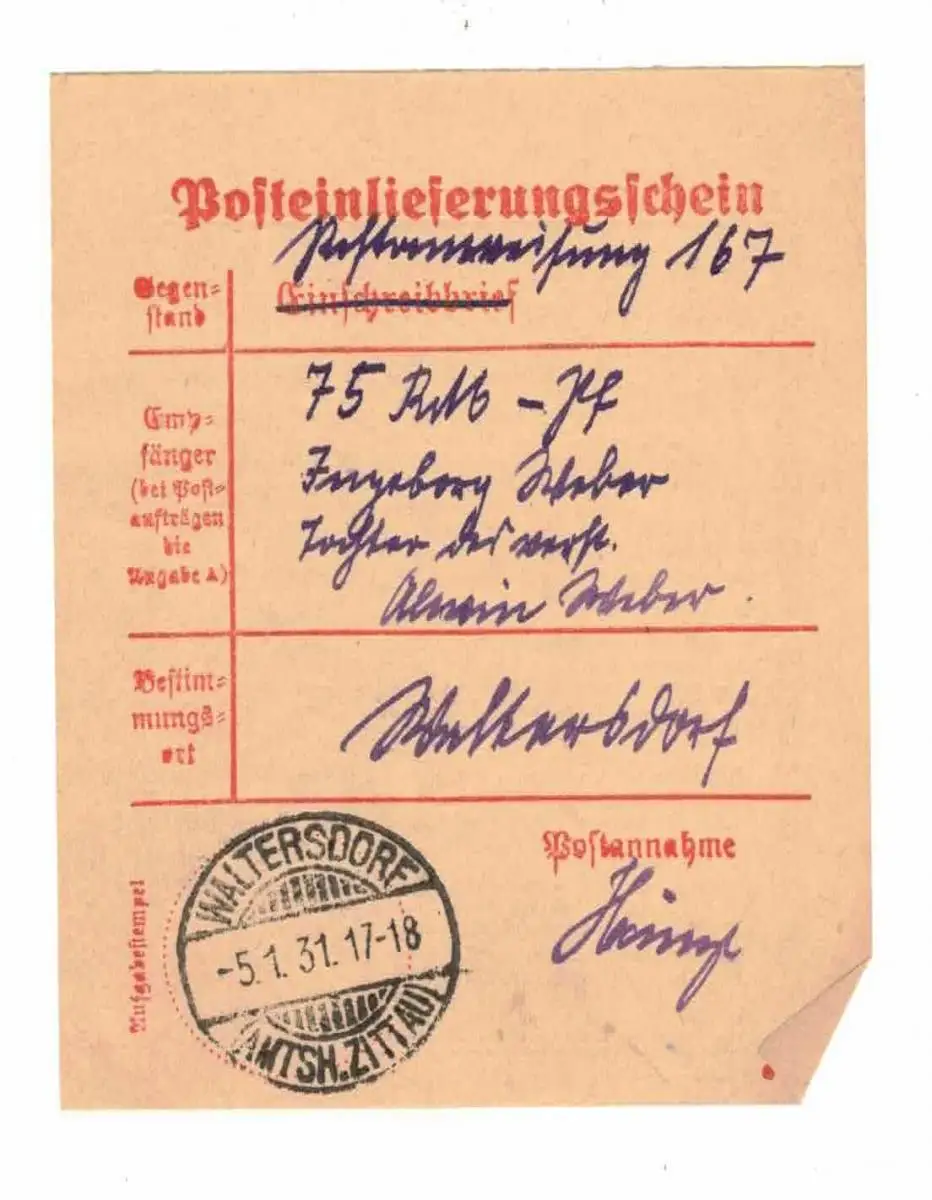 Posteinlieferungsschein
Postanweisung 167
Gegen=
stand
Einschreibbrief
75 RM – Pf
Emp=
fänger
(bei Post=
aufträgen
die
Angabe A)
Ingeborg Weber
Tochter des verst.
Alwin Weber.
Bestim=
mungs=
ort
Waltersdorf
Aufgabestempel
WALTERSDORF
-5.1.31.17-18
AMTSH.ZITTAU
Postannahme